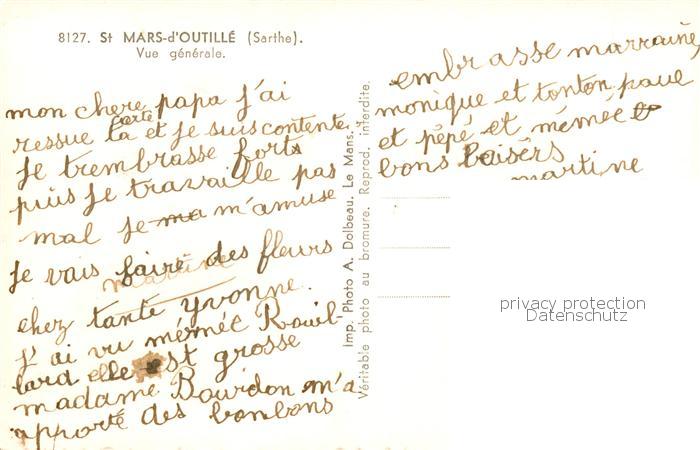 8127. St MARS-d'OUTILLÉ (Sarthe).
Vue générale.
mon chere papa j'ai
ressue ta carte et je suis contente.
Je trembrasse forts
puis Je travaille pas
mal Je ma m'amuse
Je vais faire des fleurs
martine
chez tante yvonne.
J'ai vu mémée Rouil-
lard elle est grosse
madame Bourdon m'a
apporté des bonbons
Imp. Photo A. Dolbeau. Le Mans.
Véritable photo au bromure. Reprod. interdite.
embrasse marraine,
monique et tonton paul
et pépé et mémée
bons baisérs
martine
privacy protection
Datenschutz